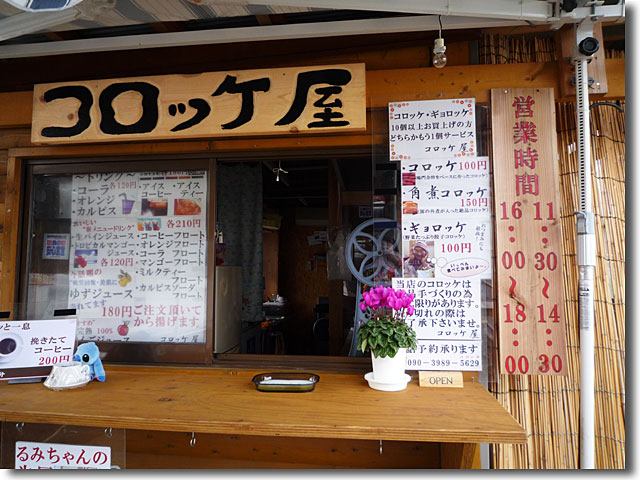 コロッケ屋
コロッケ・ギョロッケ
10個以上お買上げの方
どちらかもう1個サービス
コロッケ屋
・コロッケ 100円
・角煮コロッケ
150円
・ギョロッケ
(野菜たっぷり餃子コロッケ)
100円
当店のコロッケは
手づくりの為
限りがあります。
切れの際は
了承下さいませ。
コロッケ屋
予約承ります
090-3989-5629
OPEN
営業時間
11:30~14:00
16:00~18:00
~ドリンク~
各120円
・コーラ
・オレンジ
・カルピス
・アイスコーヒー
・アイスティー
新メニュードリンク
各210円
・生パインジュース
・トロピカルマンゴー
・アップル
各120円
・コーヒーフロート
・オレンジフロート
・コーラフロート
・マンゴーフロート
・ミルクティーフロート
・カルピスソーダフロート
ゆずジュース
180円
ご注文頂いて
から揚げます
コロッケ屋
挽きたて
コーヒー
200円
るみちゃんの